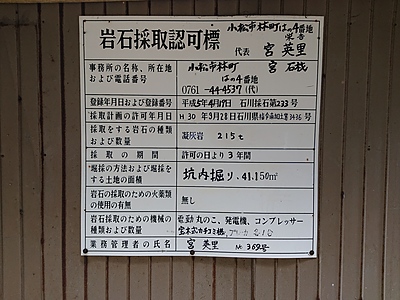 岩石採取認可標
小松市林町はの4番地
栄告
代表 宮 英里
事務所の名称、所在地
および電話番号
小松市林町 宮 石栈
はの4番地
0761-44-4537(代)
登録年月日および登録番号
平成5年4月19日 石川採石第233号
採取計画の許可年月日
H30年9月28日石川県指令
3436号
採取をする岩石の種類
および数量
凝灰岩 215t
採取の期間
許可の日より3年間
掘採の方法および掘採を
する土地の面積
坑内掘り、41.150m²
岩石の採取のための火薬類
の使用の有無
無し
岩石採取のための機械の
種類および数量
電動丸のこ、発電機、コンプレッサー
業務管理者の氏名
宮 英里 No 369号